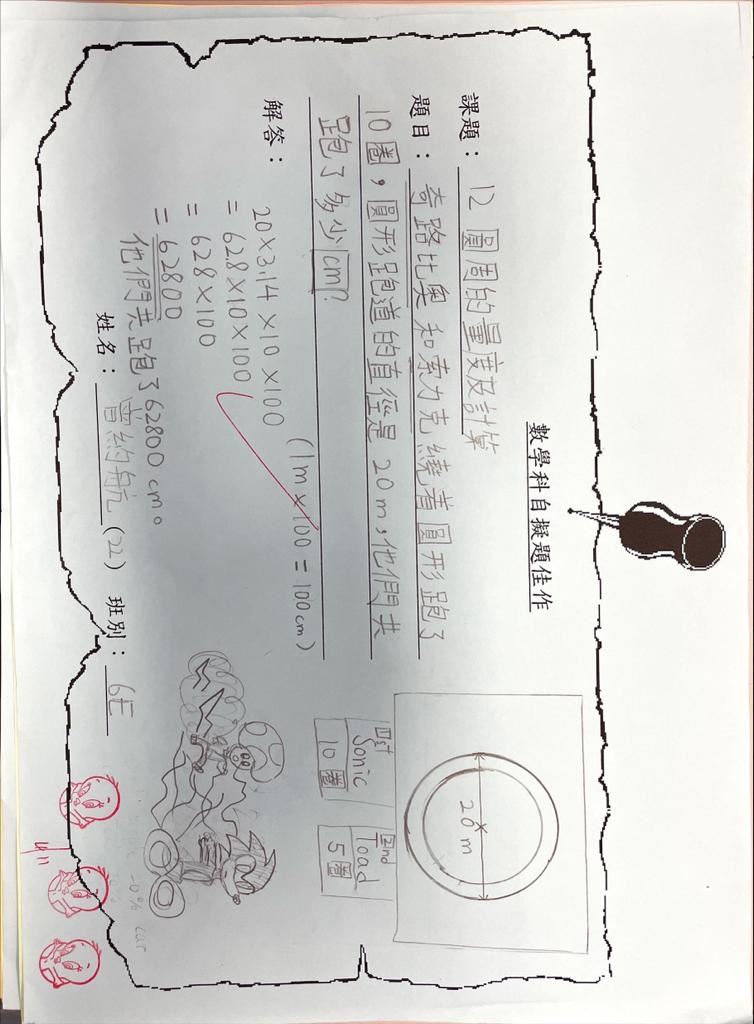 數學科自擬題佳作
課題：12 圓周的量度及計算
題目：奇路比奧和索力克繞着圓形跑了
10圈，圓形跑道的直徑是20m，他們共
跑了多少cm？
解答：
20×3.14×10×100 (1m×100=100cm)
=628×10×100
=628×100
=62800
他們共跑了62800cm。
姓名：曾約航(22) 班別：6E
20 m
1st
Sonic
10圈
2nd
Toad
5圈
4/11